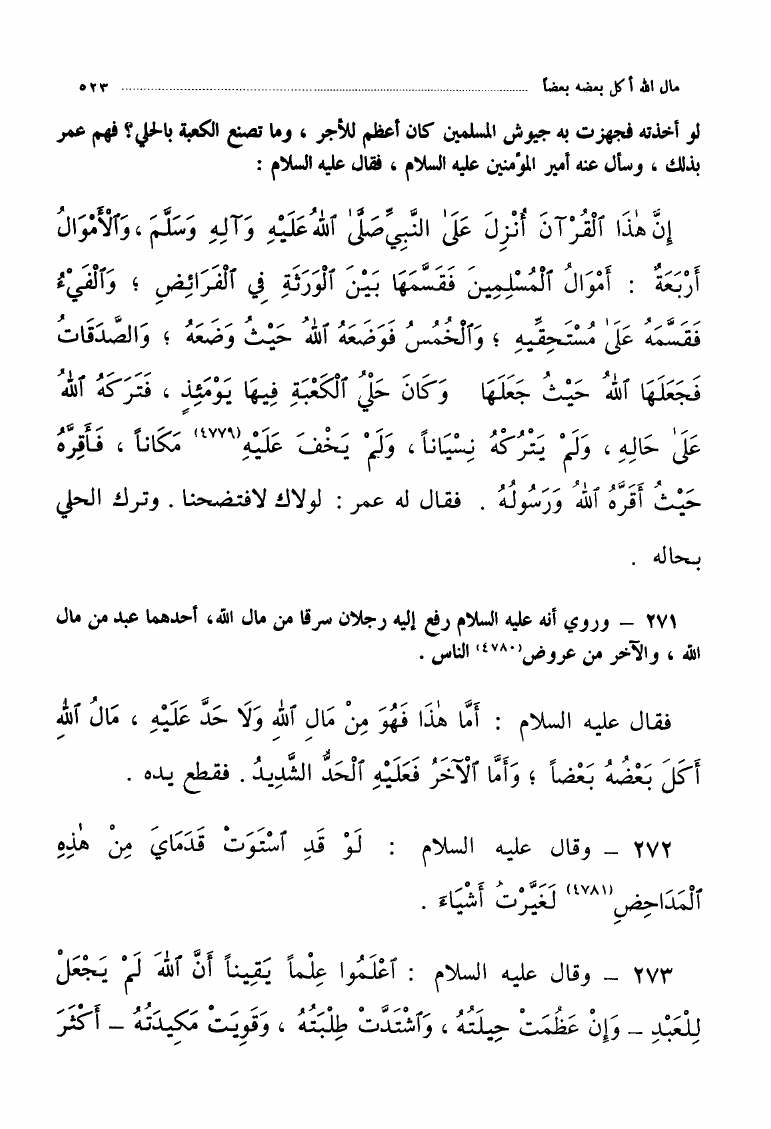 مال الله أكل بعضه بعضاً ........ ٥٢٣
لو أخذته فجهزت به جيوش المسلمين كان أعظم للأجر ، وما تصنع الكعبة بالحلي؟ فهم عمر
بذلك ، وسأل عنه أمير المؤمنين عليه السلام ، فقال عليه السلام :
إِنَّ هٰذَا ٱلْقُرْآنَ أُنْزِلَ عَلَىٰ النَّبِيِّ صَلَّىٰ ٱللهُ عَلَيْهِ وَآلِهِ وَسَلَّمَ ، وَٱلْأَمْوَالُ
أَرْبَعَةٌ : أَمْوَالُ ٱلْمُسْلِمِينَ فَقَسَّمَهَا بَيْنَ ٱلْوَرَثَةِ فِي ٱلْفَرَائِضِ ؛ وَٱلْفَيْءُ
فَقَسَّمَهُ عَلَىٰ مُسْتَحِقِّيهِ ؛ وَٱلْخُمْسُ فَوَضَعَهُ ٱللهُ حَيْثُ وَضَعَهُ ؛ وَالصَّدَقَاتُ
فَجَعَلَهَا ٱللهُ حَيْثُ جَعَلَهَا وَكَانَ حَلْيُ ٱلْكَعْبَةِ فِيهَا يَوْمَئِذٍ ، فَتَرَكَهُ ٱللهُ
عَلَىٰ حَالِهِ ، وَلَمْ يَتْرُكْهُ نِسْيَاناً ، وَلَمْ يَخْفَ عَلَيْهِ(٤٧٧٩) مَكَاناً ، فَأَقِرَّهُ
حَيْثُ أَقَرَّهُ ٱللهُ وَرَسُولُهُ . فقال له عمر : لولاك لافتضحنا . وترك الحلي
بحاله .
٢٧١ – وروي أنه عليه السلام رفع إليه رجلان سرقا من مال الله، أحدهما عبد من مال
الله ، والآخر من عروض(٤٧٨٠) الناس .
فقال عليه السلام : أَمَّا هٰذَا فَهُوَ مِنْ مَالِ ٱللهِ وَلَا حَدَّ عَلَيْهِ ، مَالُ ٱللهِ
أَكَلَ بَعْضُهُ بَعْضاً ؛ وَأَمَّا ٱلْآخَرُ فَعَلَيْهِ ٱلْحَدُّ الشَّدِيدُ . فقطع يده .
٢٧٢ – وقال عليه السلام : لَوْ قَدِ ٱسْتَوَتْ قَدَمَايَ مِنْ هٰذِهِ
ٱلْمَدَاحِضِ(٤٧٨١) لَغَيَّرْتُ أَشْيَاءَ .
٢٧٣ – وقال عليه السلام : ٱعْلَمُوا عِلْماً يَقِيناً أَنَّ ٱللهَ لَمْ يَجْعَلْ
لِلْعَبْدِ – وَإِنْ عَظُمَتْ حِيلَتُهُ ، وَٱشْتَدَّتْ طِلْبَتُهُ ، وَقَوِيَتْ مَكِيدَتُهُ – أَكْثَرَ